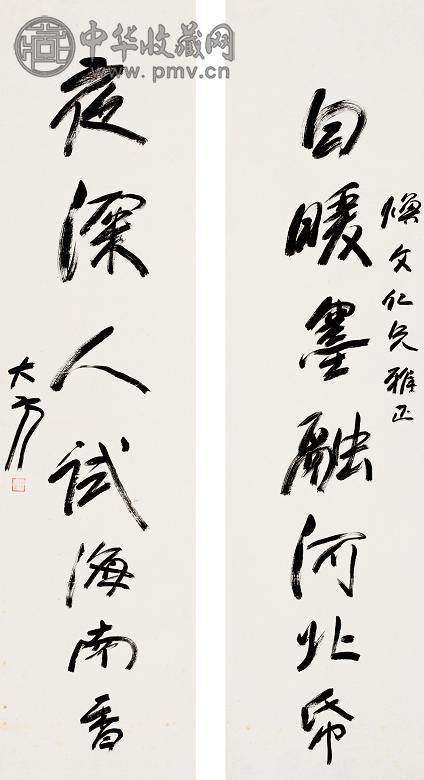 中华收藏网
www.pmv.cn
煥文仁兄雅正
日暖墨融河北帋
夜深人試海南香
大方